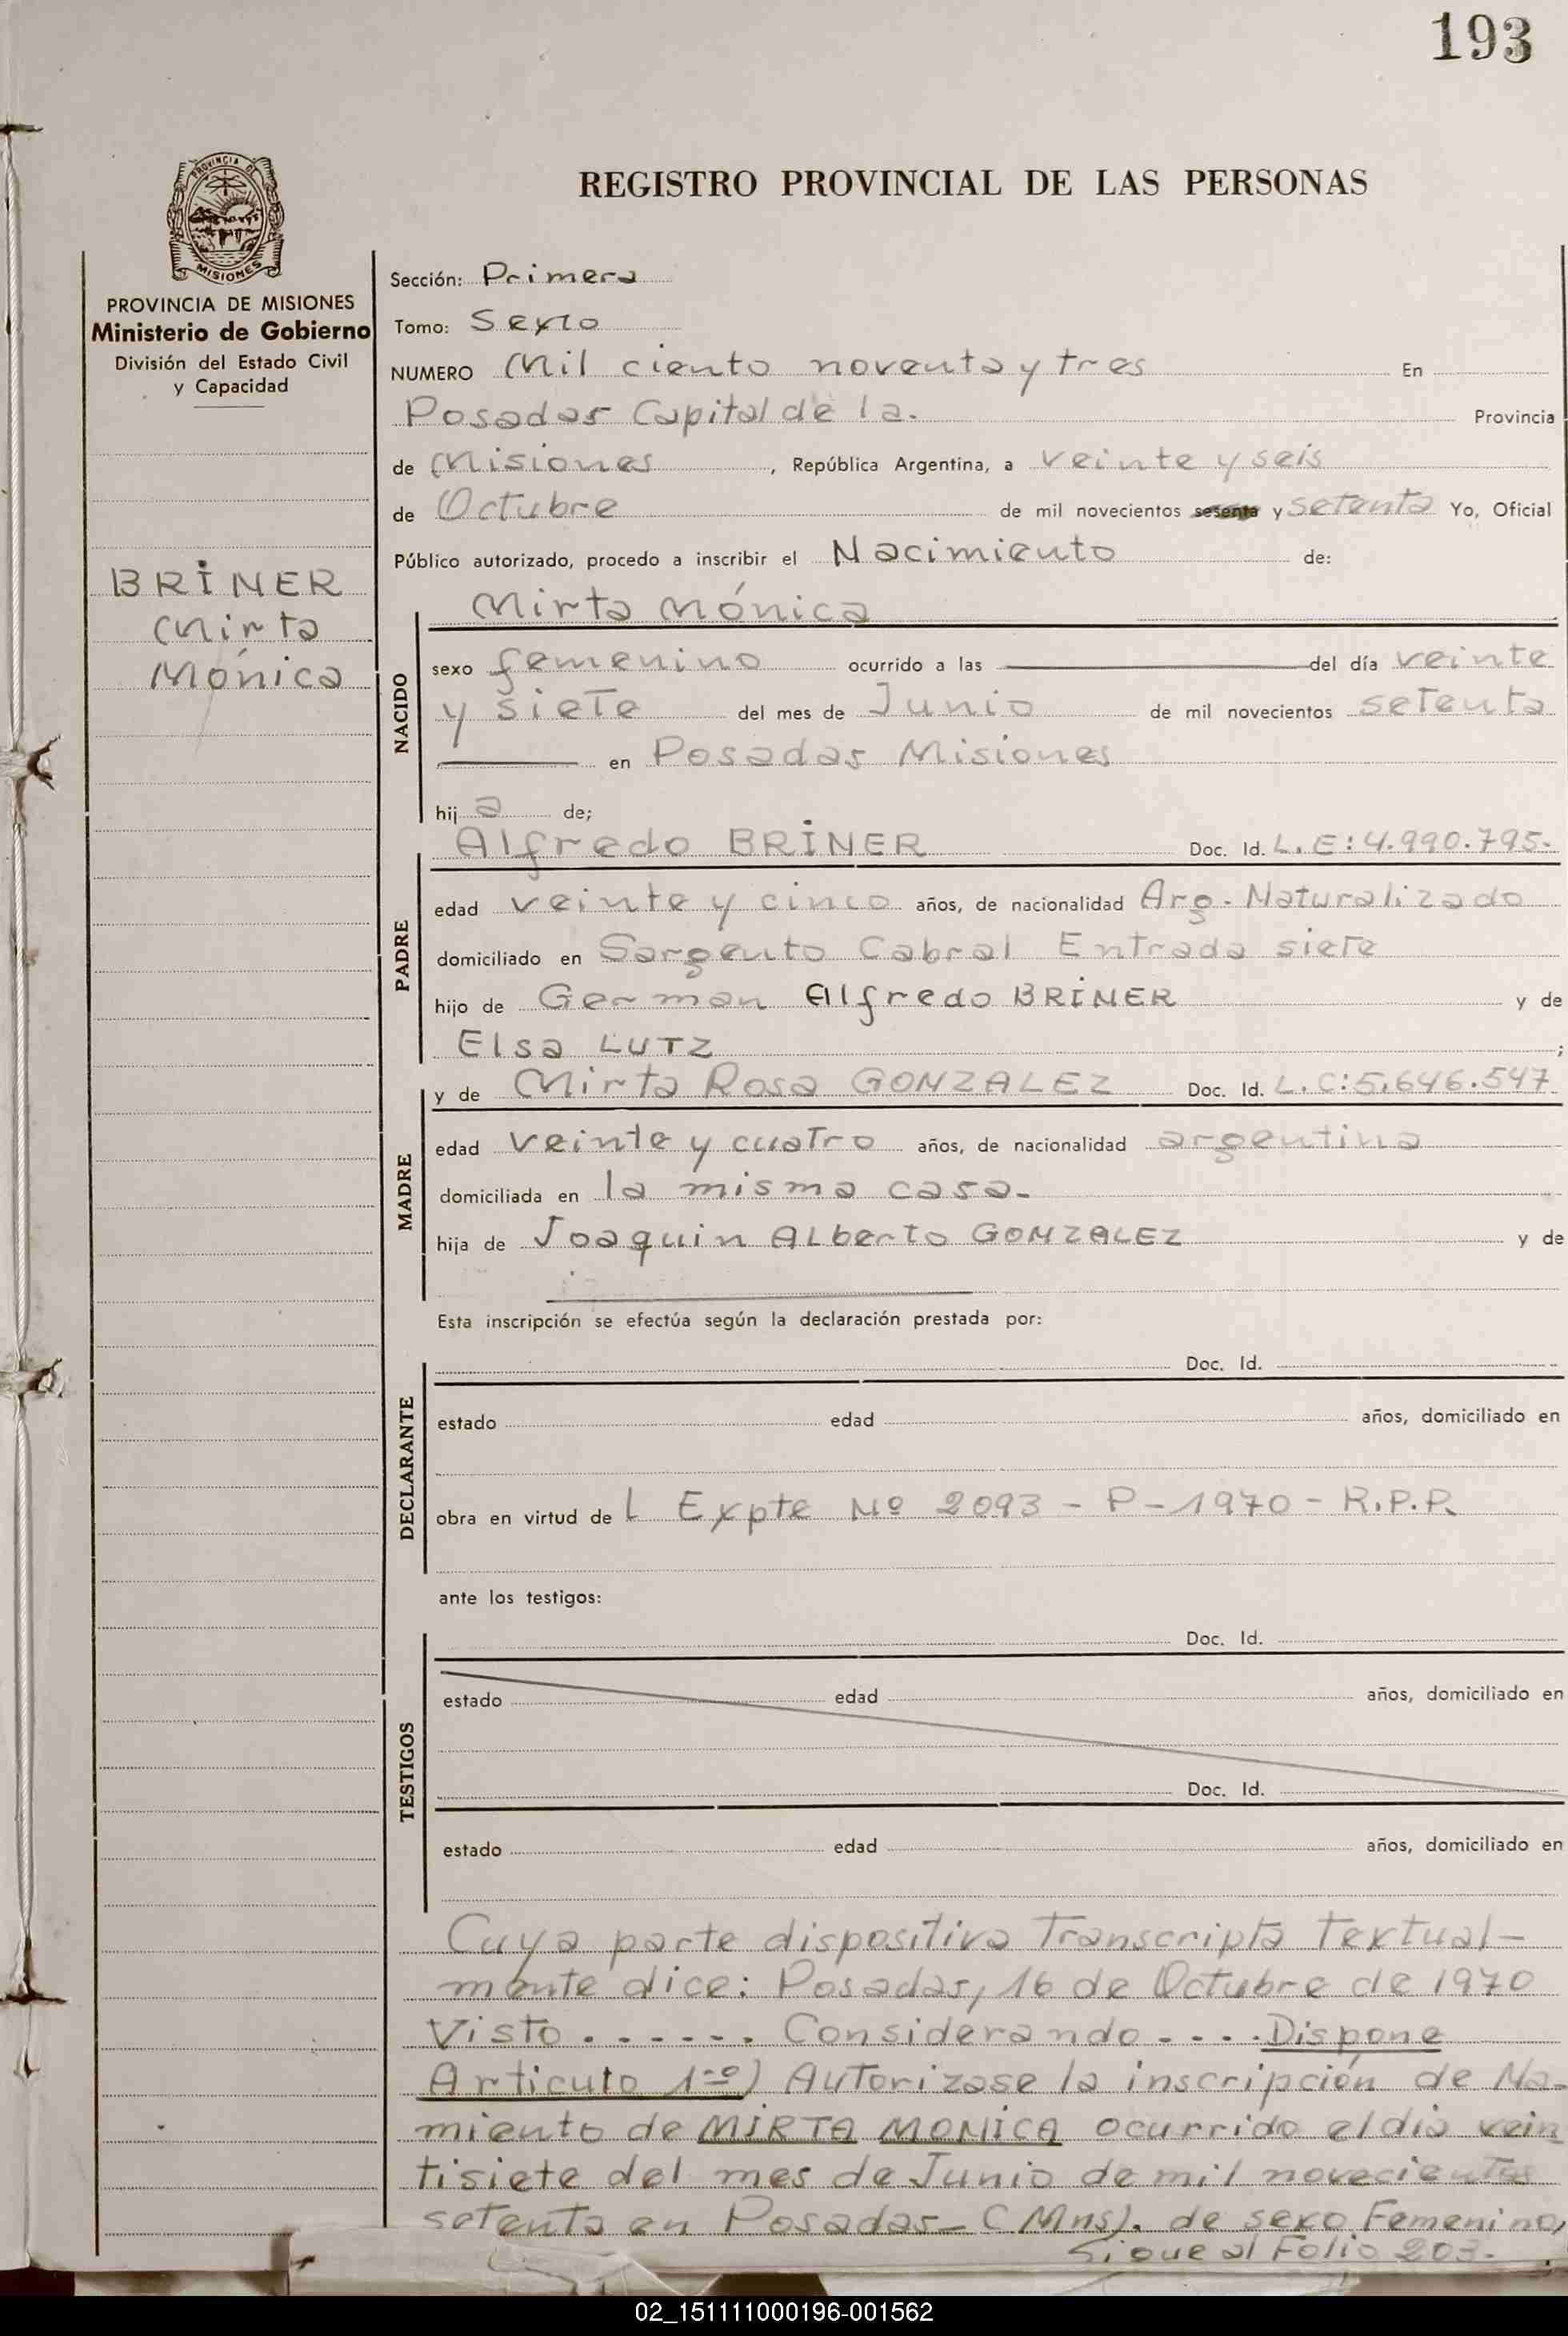 193
PROVINCIA DE
MISIONES
REGISTRO PROVINCIAL DE LAS PERSONAS
PROVINCIA DE MISIONES
Ministerio de Gobierno
División del Estado Civil
y Capacidad
BRINER
Mirta
Mónica
Sección: Primera
Tomo: Sexto
NUMERO Mil ciento noventa y tres En
Posadas Capital de la. Provincia
de Misiones, República Argentina, a veinte y seis
de Octubre de mil novecientos sesenta y setenta Yo, Oficial
Público autorizado, procedo a inscribir el Nacimiento de:
Mirta Mónica
NACIDO
sexo femenino ocurrido a las del día veinte
y siete del mes de Junio de mil novecientos setenta
en Posadas Misiones
hij a de;
Alfredo BRINER Doc. Id. L.E: 4.990.795.
PADRE
edad veinte y cinco años, de nacionalidad Arg. Naturalizado
domiciliado en Sargento Cabral Entrada siete
hijo de German Alfredo BRINER y de
Elsa LUTZ ;
y de Mirta Rosa GONZALEZ Doc. Id. L.C: 5.646.547
MADRE
edad veinte y cuatro años, de nacionalidad argentina
domiciliada en la misma casa.
hija de Joaquin Alberto GONZALEZ y de
Esta inscripción se efectúa según la declaración prestada por:
Doc. Id.
DECLARANTE
estado edad años, domiciliado en
obra en virtud de l Expte Nº 2093 - P - 1970 - R.P.P.
ante los testigos:
Doc. Id.
TESTIGOS
estado edad años, domiciliado en
Doc. Id.
estado edad años, domiciliado en
Cuya parte dispositiva Transcripta Textual-
mente dice: Posadas, 16 de Octubre de 1970
Visto . . . . . . Considerando . . . . Dispone
Articulo 1º) Autorizase la inscripción de Na-
miento de MIRTA MONICA ocurrido el dia vein
tisiete del mes de Junio de mil novecientos
setenta en Posadas - (Mns). de sexo Femenino,
Sigue al Folio 203.
02_151111000196-001562